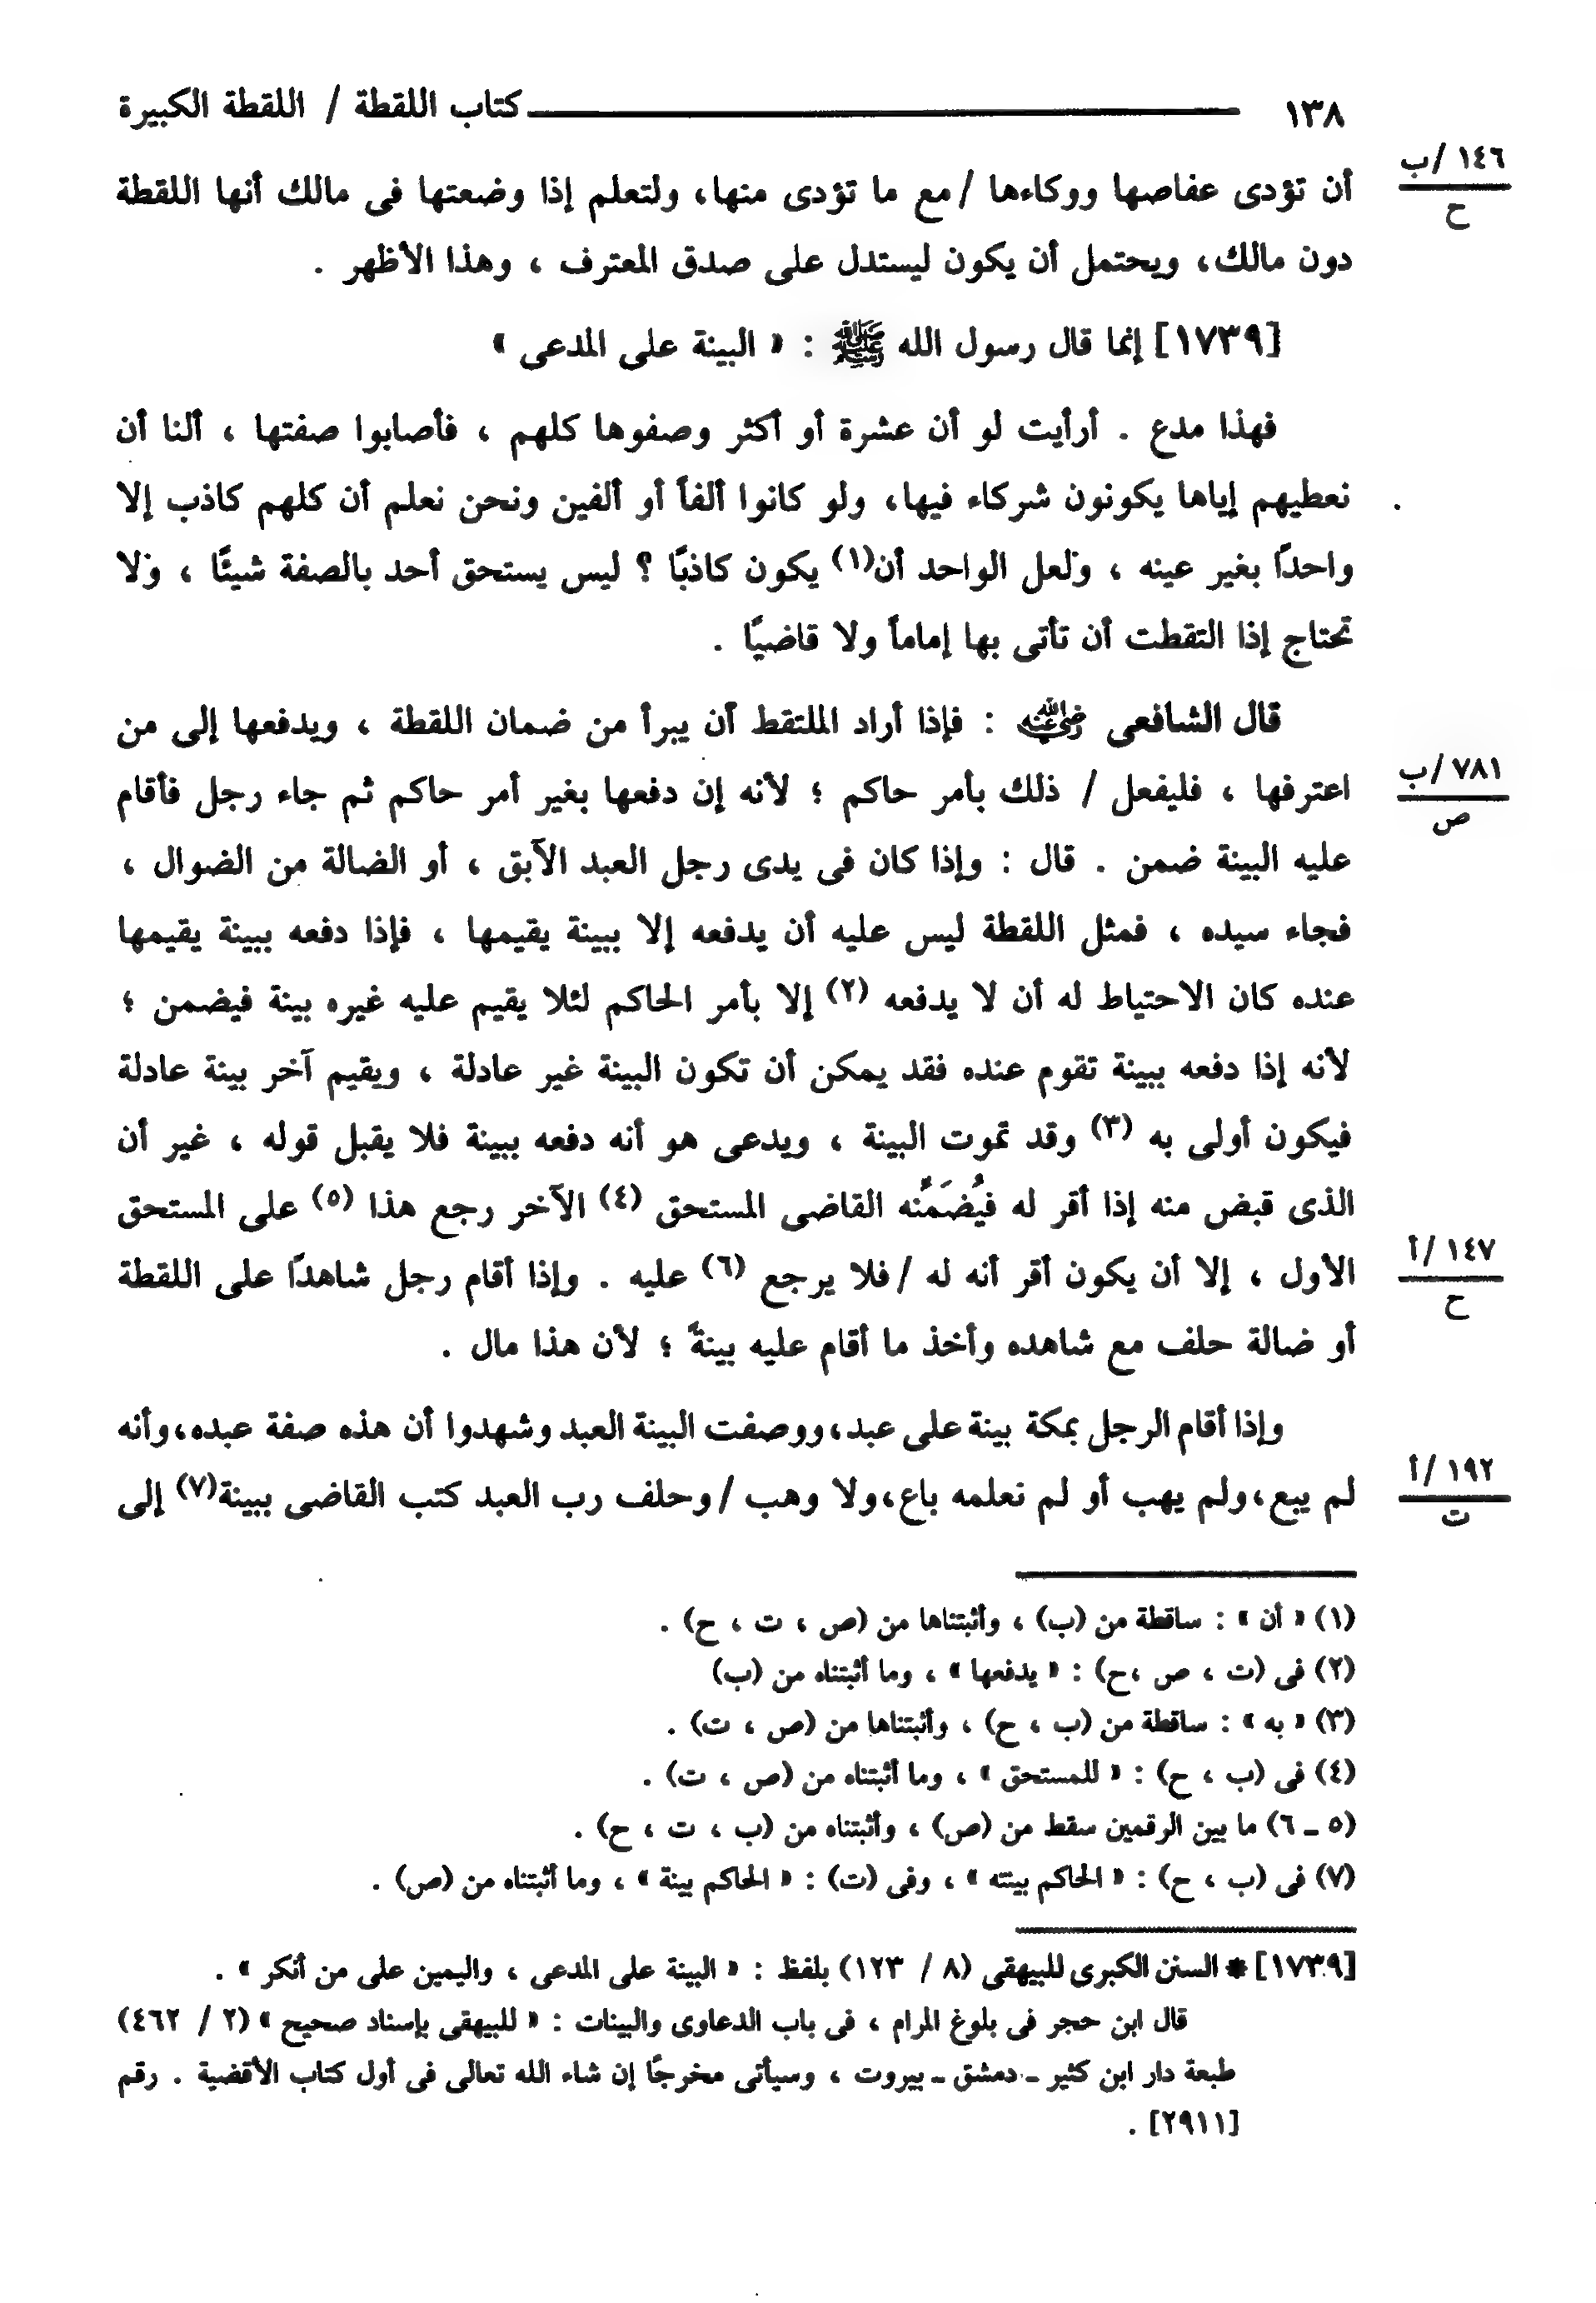 ١٣٨ كتاب اللقطة / اللقطة الكبيرة
١٤٦ /ب
ح
أن تؤدى عفاصها ووكاءها / مع ما تؤدى منها، ولتعلم إذا وضعتها فى مالك أنها اللقطة
دون مالك، ويحتمل أن يكون ليستدل على صدق المعترف ، وهذا الأظهر .
[١٧٣٩] إنما قال رسول الله ﷺ : « البينة على المدعى »
فهذا مدع . أرأيت لو أن عشرة أو أكثر وصفوها كلهم ، فأصابوا صفتها ، ألنا أن
نعطيهم إياها يكونون شركاء فيها، ولو كانوا ألفاً أو ألفين ونحن نعلم أن كلهم كاذب إلا
واحدًا بغير عينه ، ولعل الواحد أن(١) يكون كاذبًا ؟ ليس يستحق أحد بالصفة شيئًا ، ولا
تحتاج إذا التقطت أن تأتى بها إماماً ولا قاضيًا .
قال الشافعى رضي الله عنه : فإذا أراد الملتقط أن يبرأ من ضمان اللقطة ، ويدفعها إلى من
٧٨١ /ب
ص
اعترفها ، فليفعل / ذلك بأمر حاكم ؛ لأنه إن دفعها بغير أمر حاكم ثم جاء رجل فأقام
عليه البينة ضمن . قال : وإذا كان فى يدى رجل العبد الآبق ، أو الضالة من الضوال ،
فجاء سيده ، فمثل اللقطة ليس عليه أن يدفعه إلا ببينة يقيمها ، فإذا دفعه ببينة يقيمها
عنده كان الاحتياط له أن لا يدفعه (٢) إلا بأمر الحاكم لئلا يقيم عليه غيره بينة فيضمن ؛
لأنه إذا دفعه ببينة تقوم عنده فقد يمكن أن تكون البينة غير عادلة ، ويقيم آخر بينة عادلة
فيكون أولى به (٣) وقد تموت البينة ، ويدعى هو أنه دفعه ببينة فلا يقبل قوله ، غير أن
الذى قبض منه إذا أقر له فيُضَمِّنه القاضى المستحق (٤) الآخر رجع هذا (٥) على المستحق
١٤٧ /أ
ح
الأول ، إلا أن يكون أقر أنه له / فلا يرجع (٦) عليه . وإذا أقام رجل شاهدًا على اللقطة
أو ضالة حلف مع شاهده وأخذ ما أقام عليه بينةً ؛ لأن هذا مال .
وإذا أقام الرجل بمكة بينة على عبد، ووصفت البينة العبد وشهدوا أن هذه صفة عبده، وأنه
١٩٢ /أ
ت
لم يبع، ولم يهب أو لم نعلمه باع، ولا وهب / وحلف رب العبد كتب القاضى ببينة(٧) إلى
(١) « أن » : ساقطة من (ب) ، وأثبتناها من (ص ، ت ، ح) .
(٢) فى (ت ، ص ،ح) : « يدفعها » ، وما أثبتناه من (ب)
(٣) « به » : ساقطة من (ب ، ح) ، وأثبتناها من (ص ، ت) .
(٤) فى (ب ، ح) : « للمستحق » ، وما أثبتناه من (ص ، ت) .
(٥ ـ ٦) ما بين الرقمين سقط من (ص) ، وأثبتناه من (ب ، ت ، ح) .
(٧) فى (ب ، ح) : « الحاكم بينته » ، وفى (ت) : « الحاكم بينة » ، وما أثبتناه من (ص) .
[١٧٣٩] * السنن الكبرى للبيهقى (٨ / ١٢٣) بلفظ : « البينة على المدعى ، واليمين على من أنكر » .
قال ابن حجر فى بلوغ المرام ، فى باب الدعاوى والبينات : « للبيهقى بإسناد صحيح » (٢ / ٤٦٢)
طبعة دار ابن كثير ـ دمشق ـ بيروت ، وسيأتى مخرجًا إن شاء الله تعالى فى أول كتاب الأقضية . رقم
[٢٩١١] .